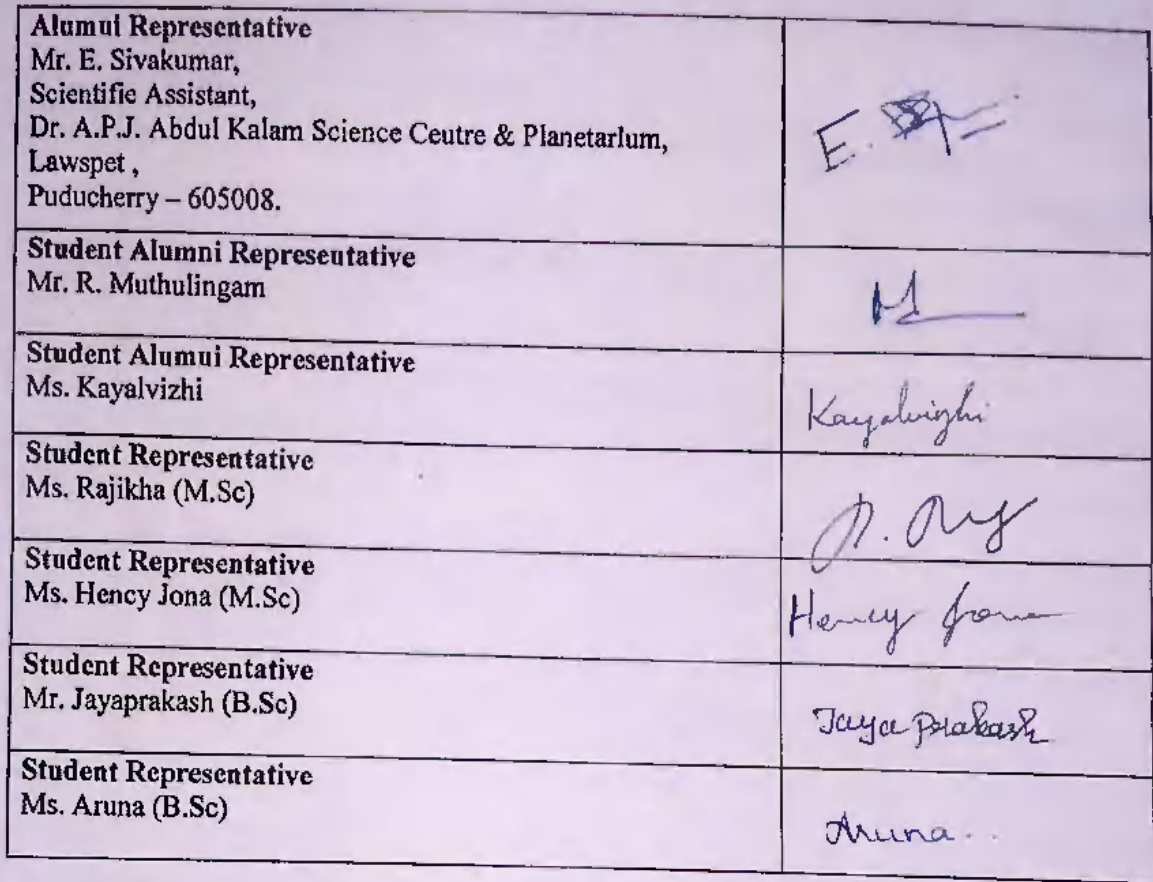 Alumui Representative
Mr. E. Sivakumar,
Scientific Assistant,
Dr. A.P.J. Abdul Kalam Science Ceutre & Planetarlum,
Lawspet ,
Puducherry – 605008.
E.
Student Alumni Represeutative
Mr. R. Muthulingam
Student Alumui Representative
Ms. Kayalvizhi
Kayalvizhi
Student Representative
Ms. Rajikha (M.Sc)
Student Representative
Ms. Hency Jona (M.Sc)
Hency Jona
Student Representative
Mr. Jayaprakash (B.Sc)
Jaya prakash
Student Representative
Ms. Aruna (B.Sc)
Aruna..